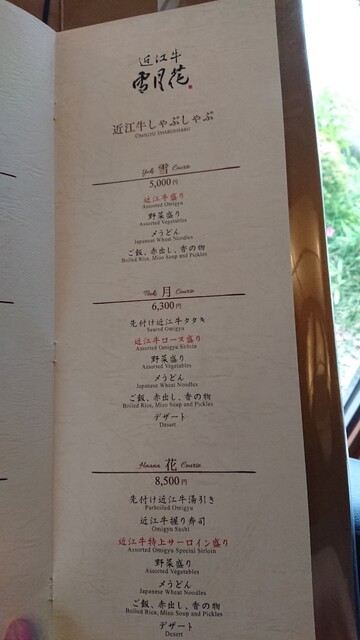 近江牛
雪月花
近江牛しゃぶしゃぶ
OMIGYU SHABUSHABU
Yuki 雪 Course
5,000円
近江牛盛り
Assorted Omigyu
野菜盛り
Assorted Vegetables
〆うどん
Japanese Wheat Noodles
ご飯、赤出し、香の物
Boiled Rice, Miso Soup and Pickles
Tsuki 月 Course
6,300円
先付け近江牛タタキ
Seared Omigyu
近江牛ロース盛り
Assorted Omigyu Sirloin
野菜盛り
Assorted Vegetables
〆うどん
Japanese Wheat Noodles
ご飯、赤出し、香の物
Boiled Rice, Miso Soup and Pickles
デザート
Desert
Hana 花 Course
8,500円
先付け近江牛湯引き
Parboiled Omigyu
近江牛握り寿司
Omigyu Sushi
近江牛特上サーロイン盛り
Assorted Omigyu Special Sirloin
野菜盛り
Assorted Vegetables
〆うどん
Japanese Wheat Noodles
ご飯、赤出し、香の物
Boiled Rice, Miso Soup and Pickles
デザート
Desert